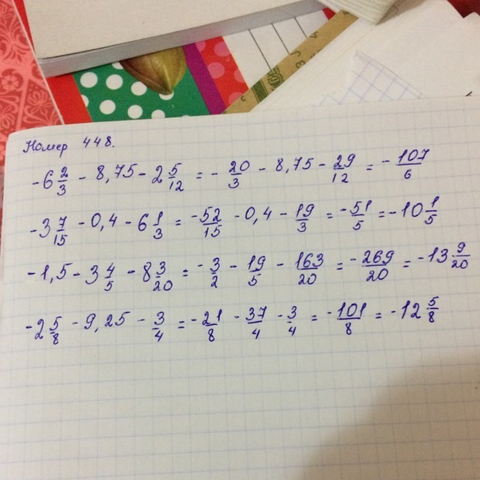 Номер 448.
-6 2/3 - 8,75 - 2 5/12 = - 20/3 - 8,75 - 29/12 = - 107/6
-3 7/15 - 0,4 - 6 1/3 = -52/15 - 0,4 - 19/3 = -51/5 = -10 1/5
-1,5 - 3 4/5 - 8 3/20 = -3/2 - 19/5 - 163/20 = -269/20 = -13 9/20
-2 5/8 - 9,25 - 3/4 = -21/8 - 37/4 - 3/4 = -101/8 = -12 5/8